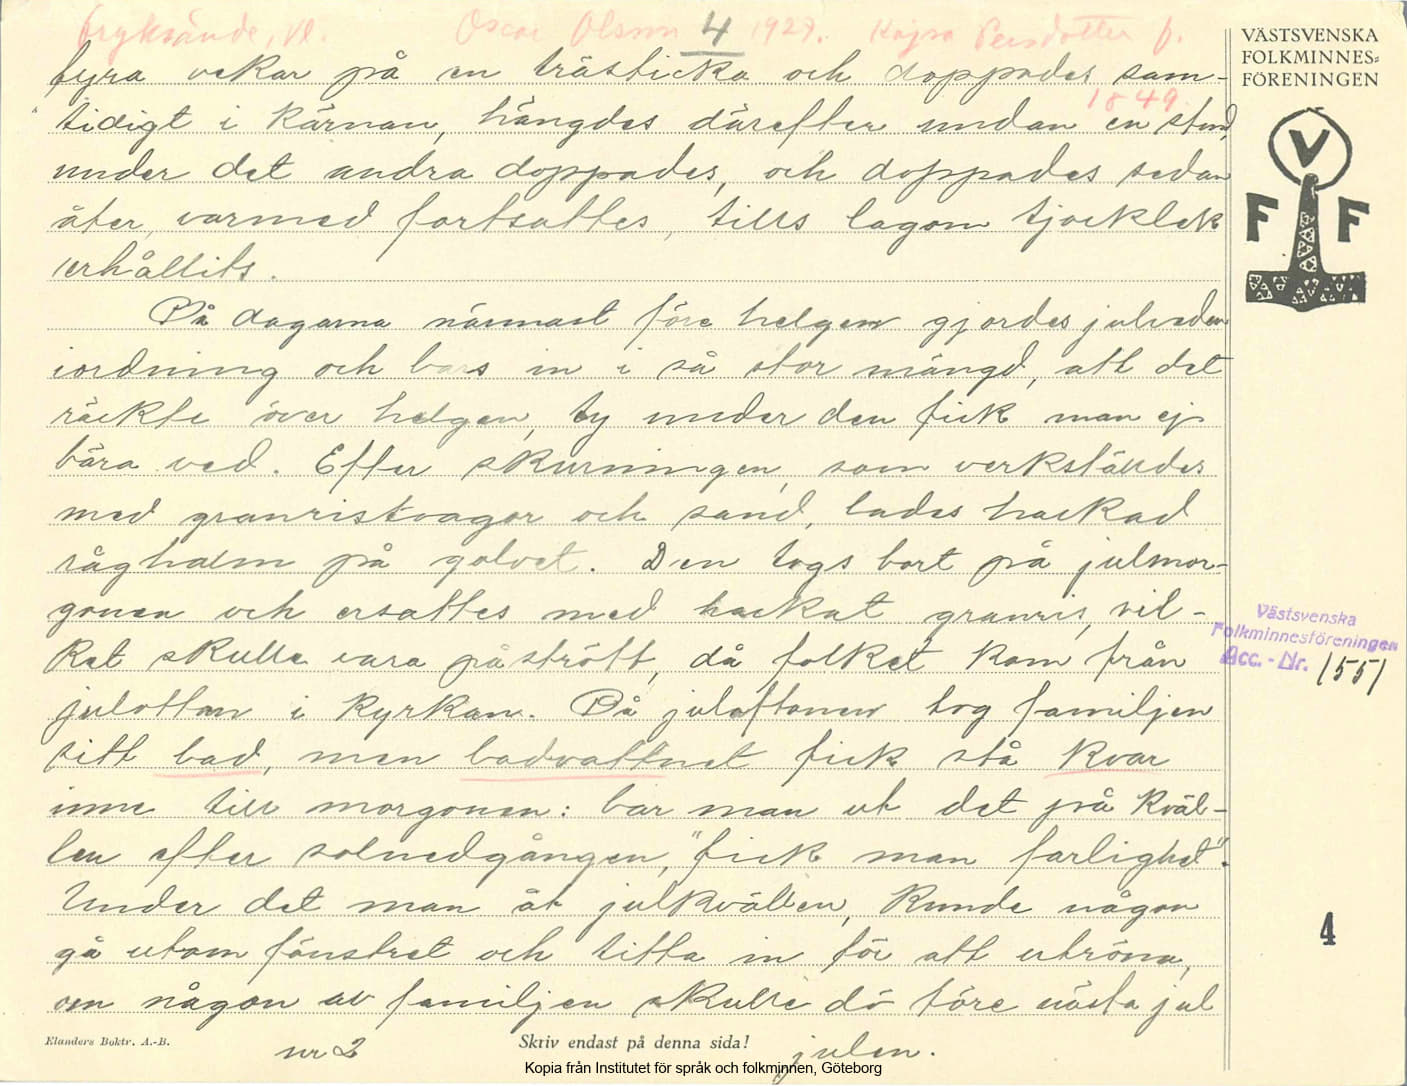 Fryksände, Vl. Oscar Olsson 4 1927. Kajsa Persdotter f.
1849.
fyra vekar på en trästicka och doppades sam-
tidigt i kärnan, hängdes därefter undan en stund,
under det andra doppades, och doppades sedan
åter, varmed fortsattes, tills lagom tjocklek
erhållits.
På dagarna närmast före helgen gjordes julveden
iordning och bars in i så stor mängd, att det
räckte över helgen, ty under den fick man ej
bära ved. Efter skurningen, som verkställdes
med granristvagor och sand, lades hackad
råghalm på golvet. Den togs bort på julmor-
gonen och ersattes med hackat granris, vil-
ket skulle vara påstrött, då folket kom från
julottan i kyrkan. På julaftonen tog familjen
sitt bad, men badvattnet fick stå kvar
inne till morgonen: bar man ut det på kväl-
len efter solnedgången, "fick man farlighet".
Under det man åt julkvällen, kunde någon
gå utom fönstret och titta in för att utröna,
om någon av familjen skulle dö före nästa jul
nr 2 julen.
VÄSTSVENSKA
FOLKMINNES-
FÖRENINGEN
V
F F
Västsvenska
Folkminnesföreningen
Acc. - Nr. 1551
4
Elanders Boktr. A.-B.
Skriv endast på denna sida!
Kopia från Institutet för språk och folkminnen, Göteborg